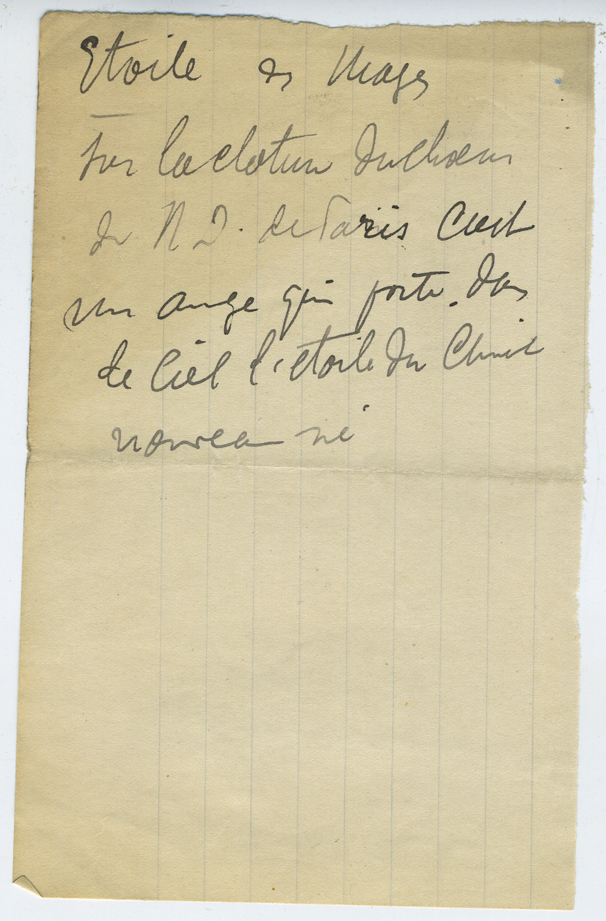 Etoile des Mages
Sur la cloture du choeur
de N D. de Paris C'est
un ange qui porte dans
le Ciel l'étoile du Christ
nouveau né